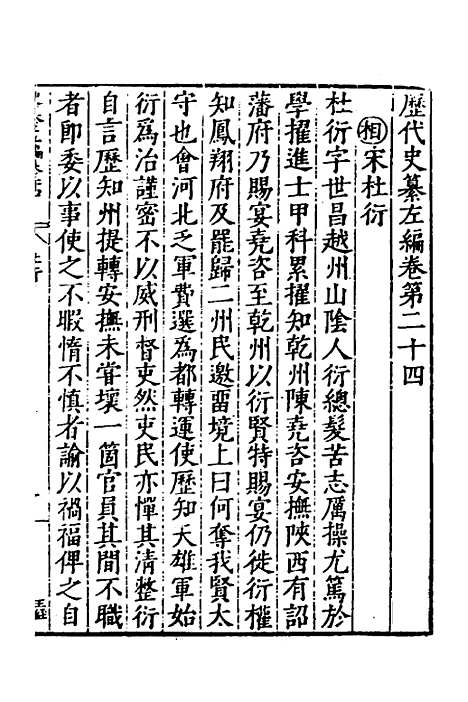 歷代史纂左編卷第二十四
相宋杜衍
杜衍字世昌越州山陰人衍總髮苦志厲操尤篤於
學擢進士甲科累擢知乾州陳堯咨安撫陝西有詔
藩府乃賜宴堯咨至乾州以衍賢特賜宴仍徙衍權
知鳳翔府及罷歸二州民邀畱境上曰何奪我賢太
守也會河北乏軍費選爲都轉運使歷知天雄軍始
衍爲治謹密不以威刑督吏然吏民亦憚其清整衍
自言歷知州提轉安撫未甞壞一箇官員其間不職
者即委以事使之不暇惰不慎者諭以禍福俾之自